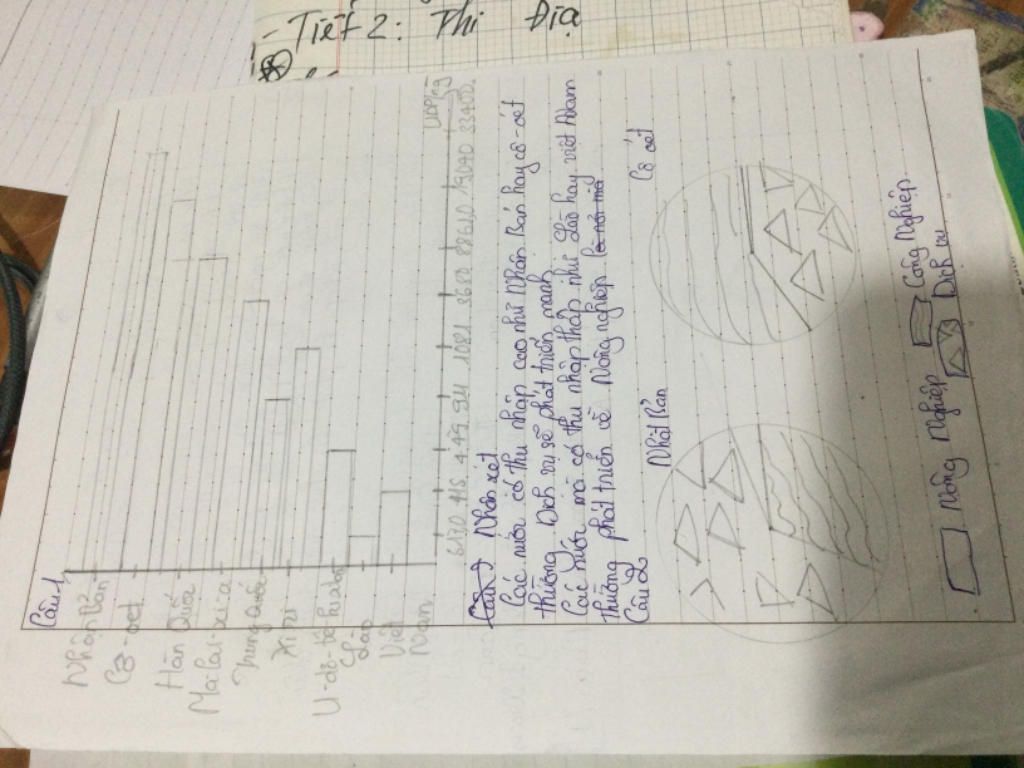 - Tiết 2: Thi Địa
Câu 1
Nhận Bản
Cô-oet
Hàn Quốc
Malai-xi-a
Trung Quốc
Xi ri
U-dơ-bê-kixtan
Lao
Việt
Nam
6170 415 449 911 1081 3680 88610 19040 33400.
Câu 1 Nhận xét
Các nước có thu nhập cao như Nhân Bản hay cô-oét
thường Dịch vụ sẽ phát triển mạnh
Các nước mà có thu nhập thấp như Lào hay việt Nam
thường phát triển về Nông nghiệp
Câu 2
Nhật Bản Cô oét
Nông Nghiệp Công Nghiệp
Dịch vụ